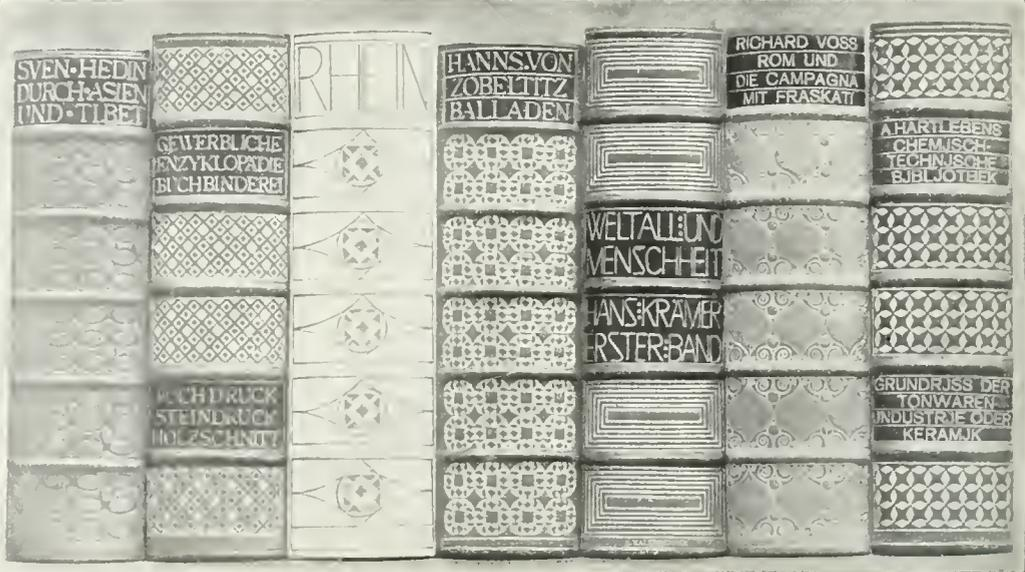 SVEN·HEDIN
DURCH·ASIEN
UND·TIBET
GEWERBLICHE
ENZYKLOPÄDIE
BUCHBINDEREI
BUCHDRUCK
STEINDRUCK
HOLZSCHNITT
RHEIN
HANNS·VON
ZOBELTITZ
BALLADEN
WELTALL:UND
MENSCHHEIT
HANS:KRÄMER
ERSTER:BAND
RICHARD VOSS
ROM UND
DIE CAMPAGNA
MIT FRASKATI
A.HARTLEBENS
CHEMJSCH-
TECHNJSCHE
BJBLJOTHEK
GRUNDRJSS DER
TONWAREN
JNDUSTRJE ODER
KERAMJK